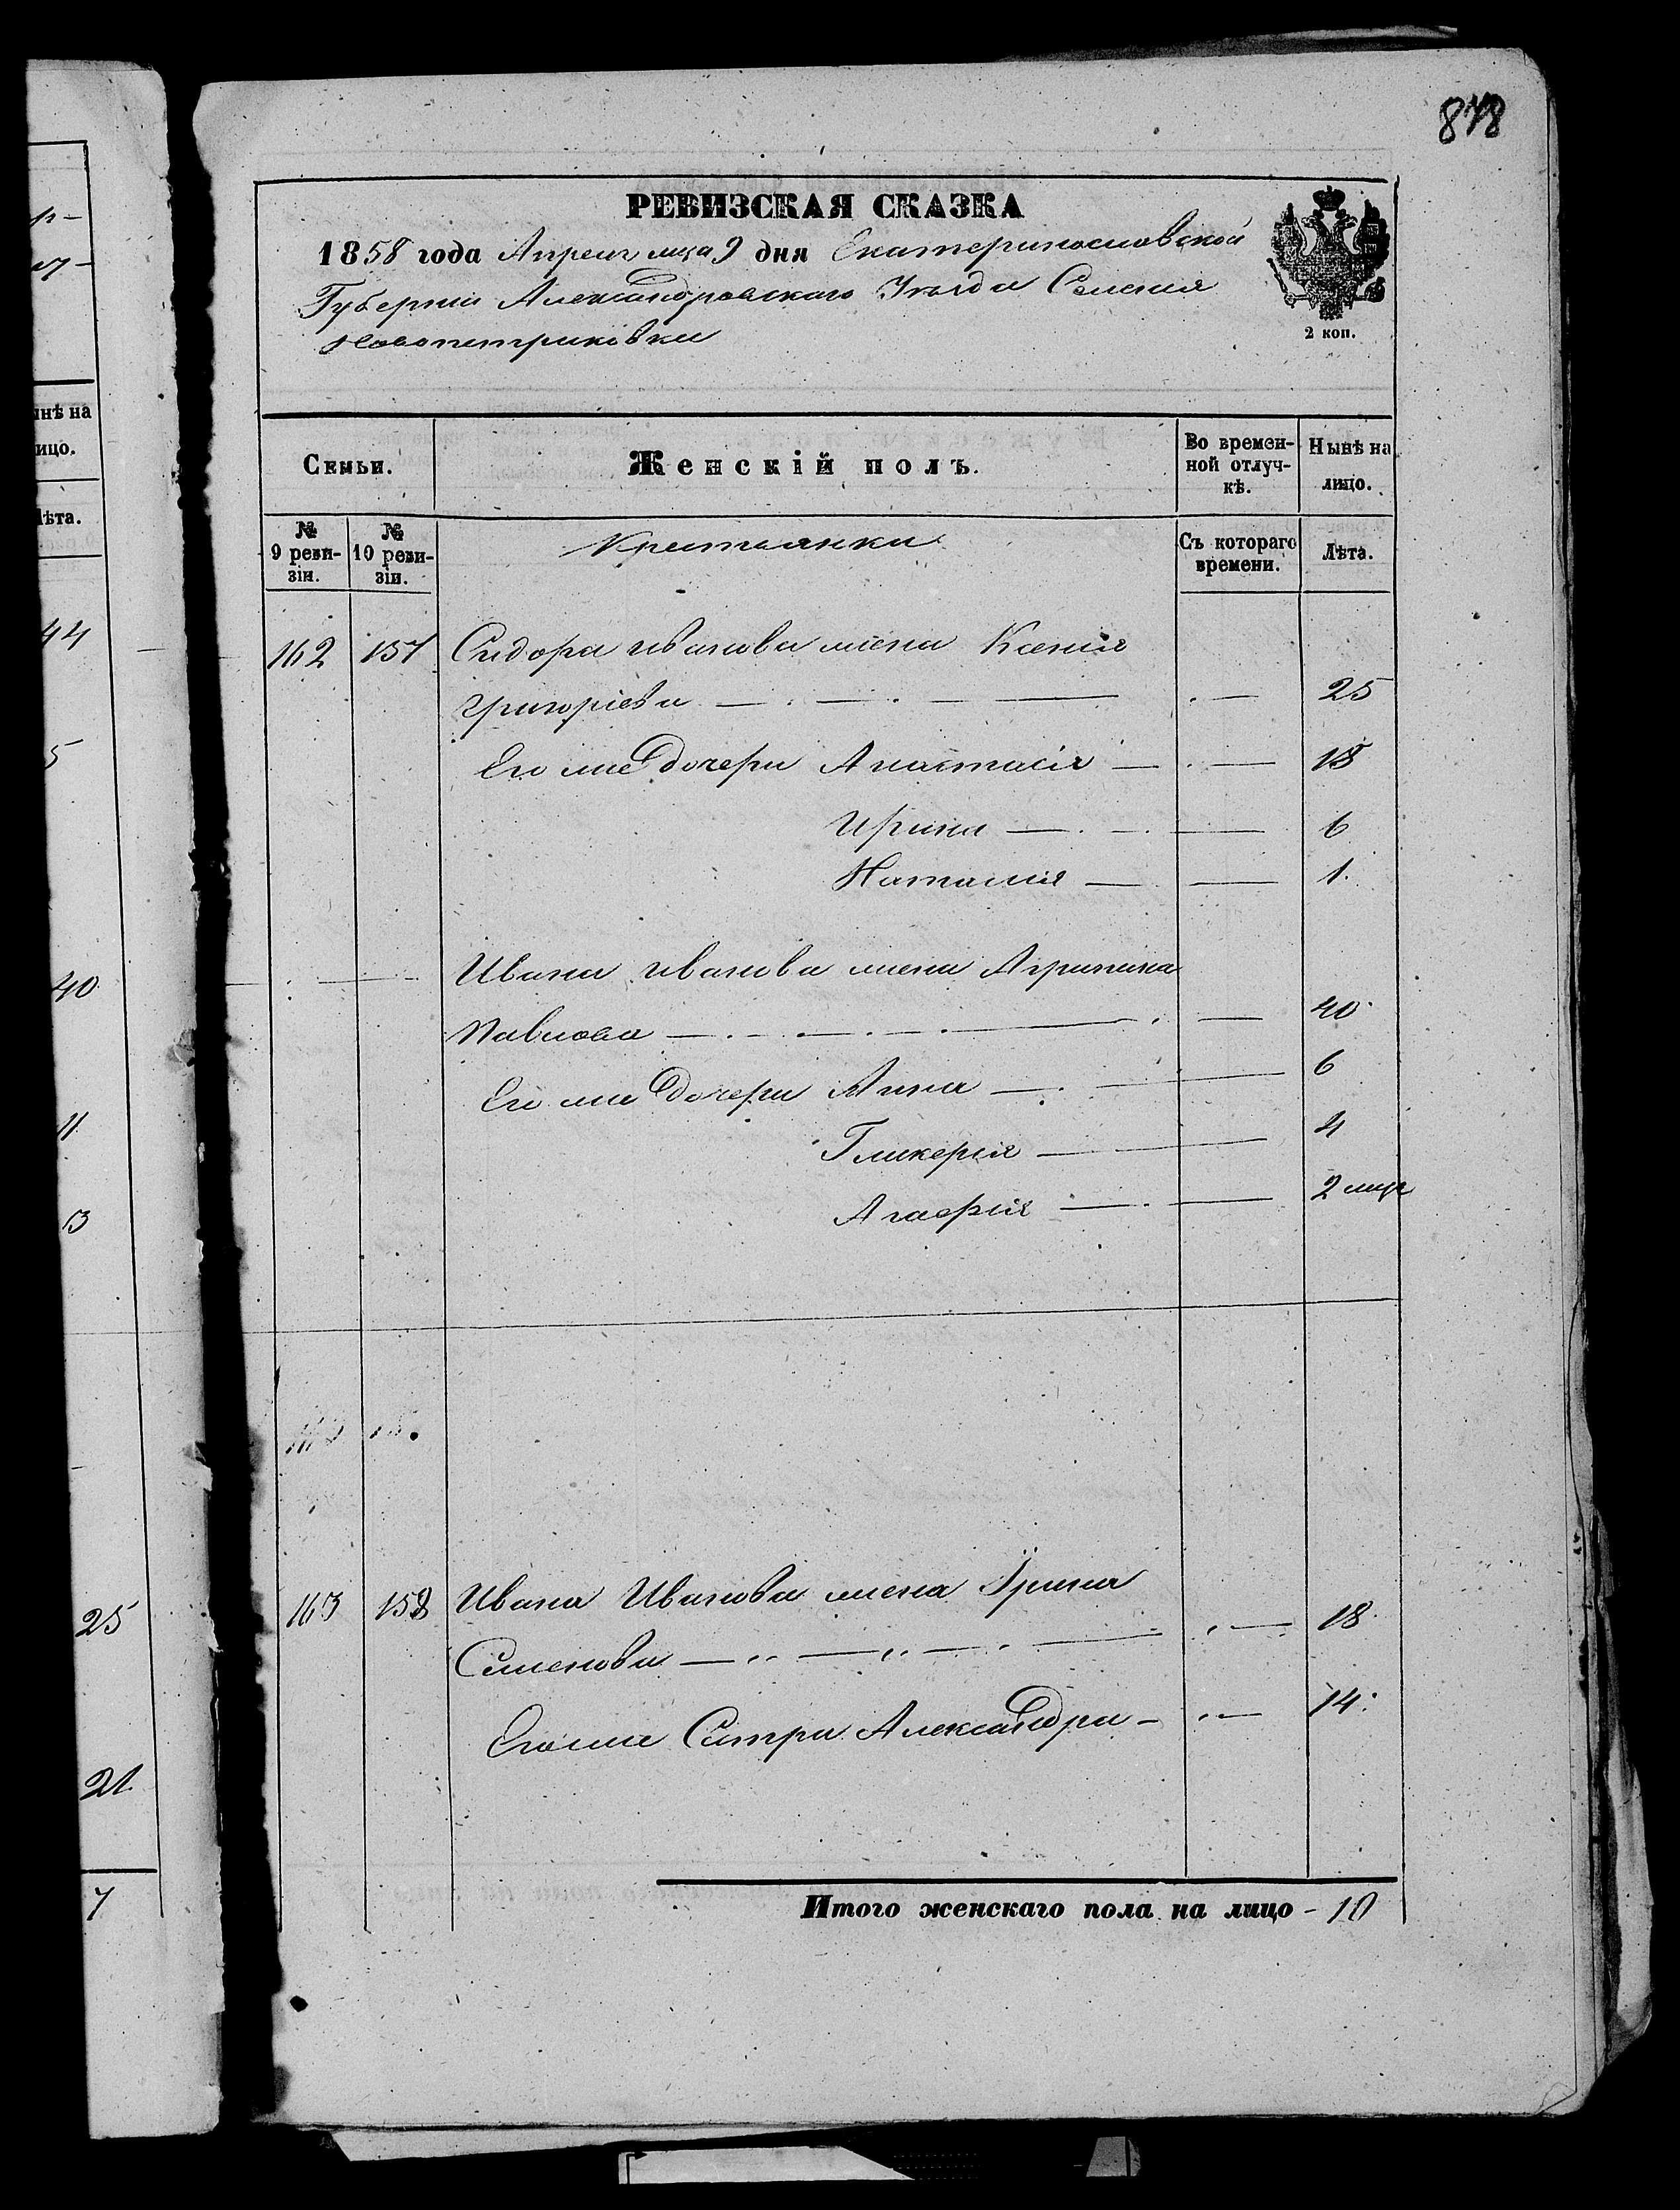 878
РЕВИЗСКАЯ СКАЗКА
1858 года Апреля мца 9 дня Екатеринославской
Губернии Александровскаго Уезда Селения
Новопетриковки
2 коп.
Семьи.
Женскій полъ.
Во времен-
ной отлуч-
кѣ.
Нынѣ на
лицо.
№
9 реви-
зіи.
№
10 реви-
зіи.
Крестьянки
Съ котораго
времени.
Лѣта.
162 157 Сидора Иванова жена Ксения
Григоріева 25
Его же дочери Анастасія 18
Ирина 6
Наталия 1
Ивана Иванова жена Агрипина
Павлова 40
Его же дочери Анна 6
Гликерия 4
2 мца
163 158 Ивана Иванова жена Ирина
Семенова 18
Его же Сестра Александра 14
Итого женскаго пола на лицо - 10
ынѣ на
ицо.
лѣта.
44
5
40
11
13
25
21
7